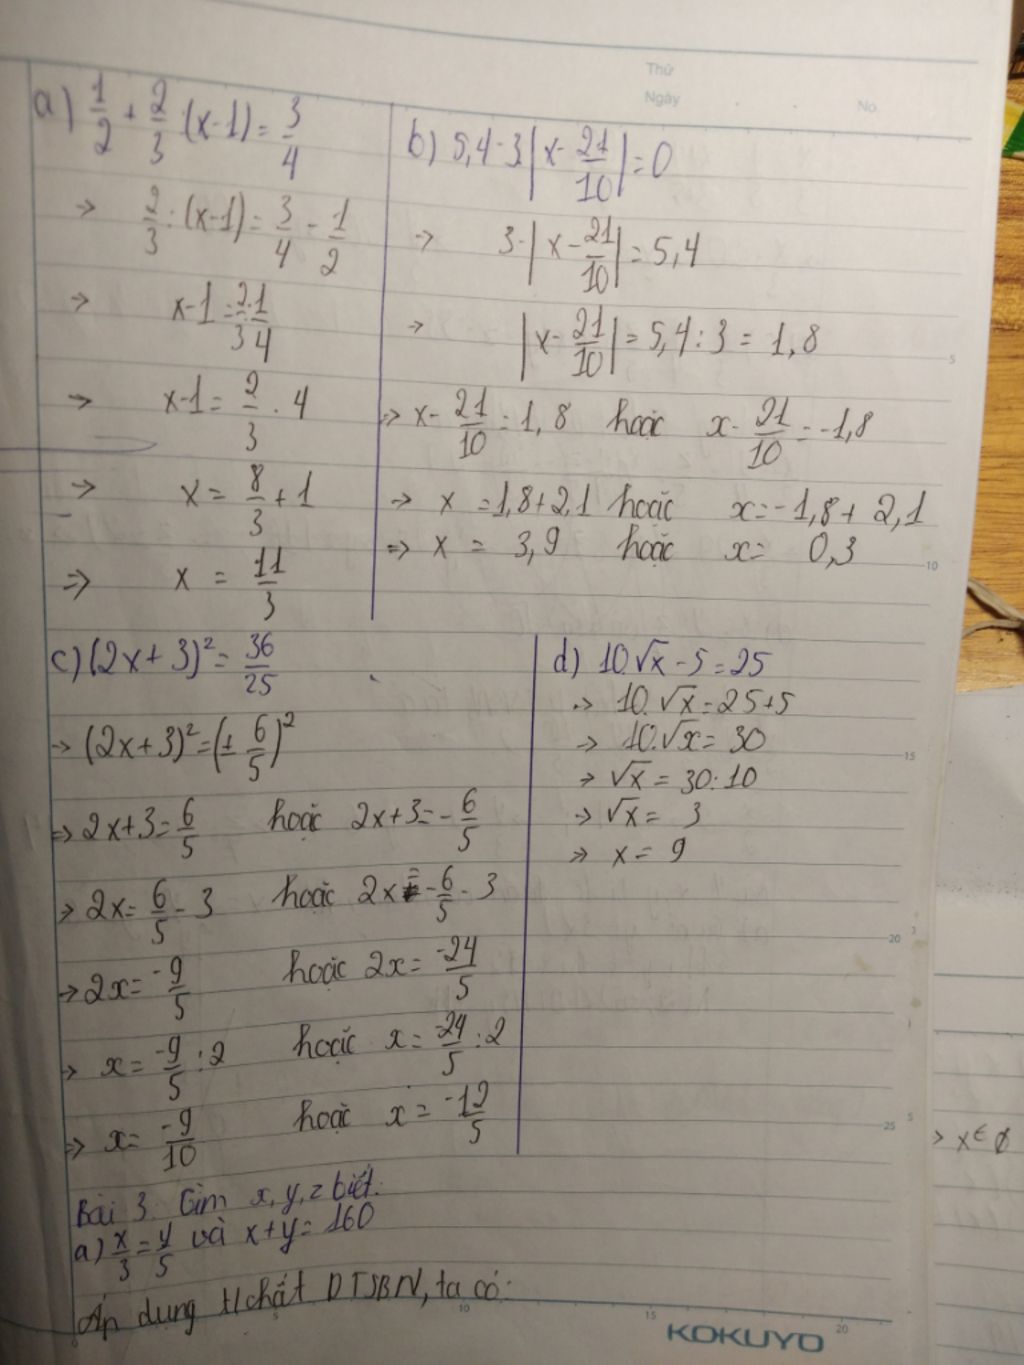 Thứ
Ngày
No.
a) 1/2 + 2/3 : (x-1) = 3/4
→ 2/3 : (x-1) = 3/4 - 1/2
→ x-1 = 2/3 : 1/4
→ x-1 = 2/3 . 4
→ x = 8/3 + 1
⇒ x = 11/3
b) 5,4 - 3|x - 21/10| = 0
→ 3.|x - 21/10| = 5,4
→ |x - 21/10| = 5,4 : 3 = 1,8
→ x - 21/10 = 1,8 hoặc x - 21/10 = -1,8
→ x = 1,8 + 2,1 hoặc x = -1,8 + 2,1
⇒ x = 3,9 hoặc x = 0,3
c) (2x + 3)² = 36/25
→ (2x + 3)² = (± 6/5)²
⇒ 2x + 3 = 6/5 hoặc 2x + 3 = -6/5
→ 2x = 6/5 - 3 hoặc 2x = -6/5 - 3
→ 2x = -9/5 hoặc 2x = -24/5
→ x = -9/5 : 2 hoặc x = -24/5 : 2
⇒ x = -9/10 hoặc x = -12/5
d) 10.√x - 5 = 25
→ 10.√x = 25 + 5
→ 10.√x = 30
→ √x = 30 : 10
→ √x = 3
⇒ x = 9
Bài 3. Tìm x, y, z biết:
a) x/3 = y/5 và x + y = 160
Áp dụng t/chất DTSBN, ta có:
5
10
15
20
25
5
10
15
20
KOKUYO
→ x ∈ ∅